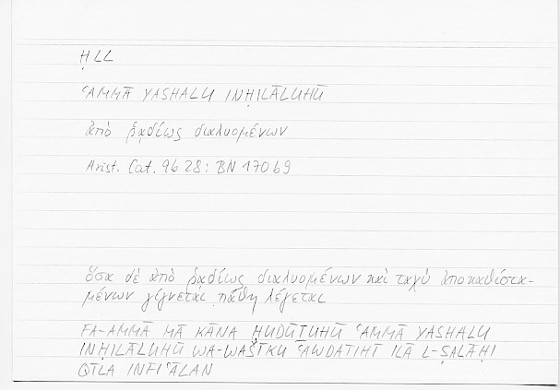 ḤLL
ʿAMMĀ YASHALU INḤILĀLUHŪ
ἀπὸ ῥᾳδίως διαλυομένων
Arist. Cat. 9b 28 : BN 170 b9
ὅσα δὲ ἀπὸ ῥᾳδίως διαλυομένων καὶ ταχὺ ἀποκαθιστα-
μένων γίγνεται πάθη λέγεται
FA-AMMĀ MĀ KĀNA ḤUDŪṮUHŪ ʿAMMĀ YASHALU
INḤILĀLUHŪ WA-WAŠĪKU ʿAWDATIHĪ ILĀ L-ṢALĀḤI
QĪLA INFIʿĀLAN